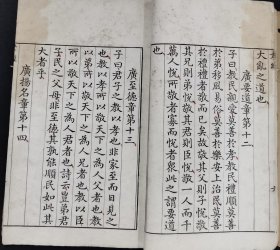 大亂之道也
廣要道章第十二
子曰教民親愛莫善於孝教民禮順莫善
於悌移風易俗莫善於樂安上治民莫善
於禮禮者敬而已矣故敬其父則子悅敬
其兄則弟悅敬其君則臣悅敬一人而千
萬人悅所敬者寡而悅者衆此之謂要道
廣至德章第十三
子曰君子之教以孝也非家至而日見之
也教以孝所以敬天下之為人父者也教
以弟所以敬天下之為人兄者也教以臣
所以敬天下之為人君者也詩云豈弟君
子民之父母非至德其孰能順民如此其
大者乎
廣揚名章第十四